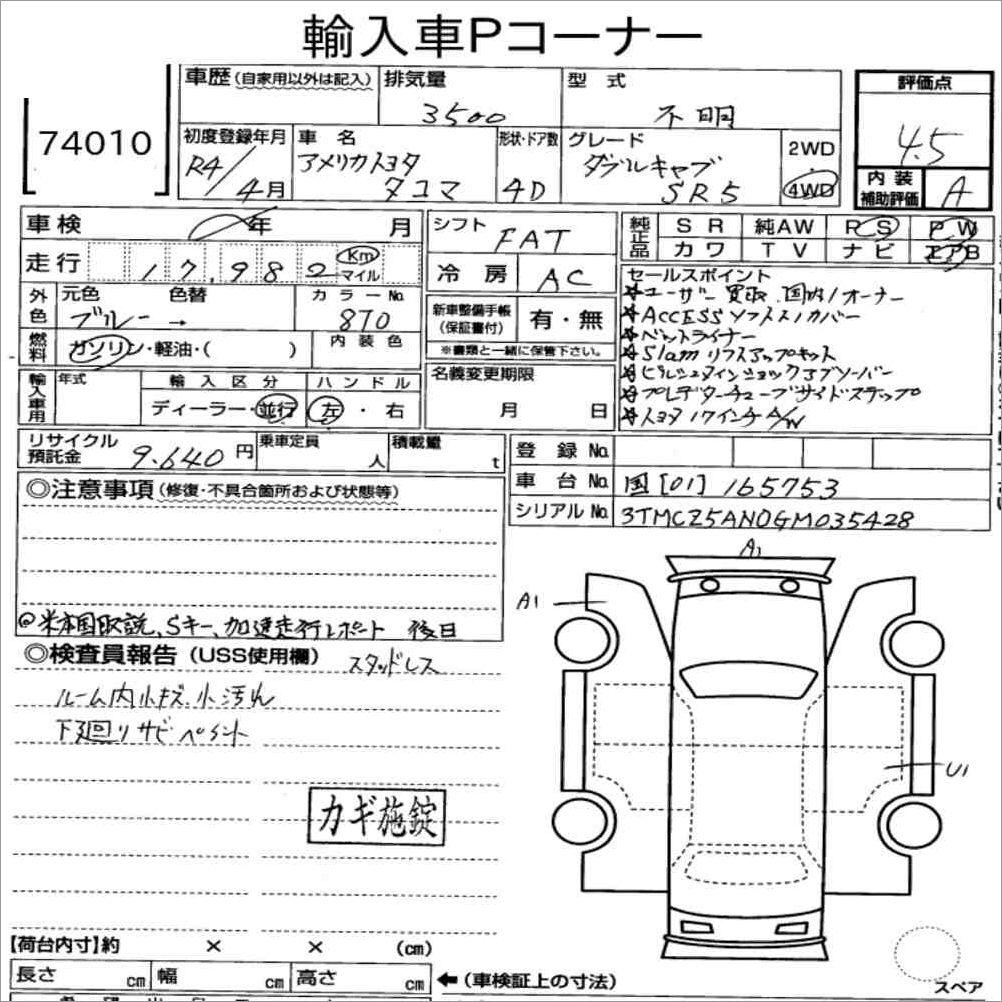 輸入車Pコーナー
74010
車歴(自家用以外は記入)
排気量 3500
型式 不明
評価点 4.5
内装補助評価 A
初度登録年月 R4/4月
車名 アメリカトヨタ タコマ
形状・ドア数 4D
グレード ダブルキャブ SR5
2WD
4WD
車検 年 月
走行 17,982 Km マイル
シフト FAT
冷房 AC
純正品 SR 純AW PS PW
カワ TV ナビ エアB
外色 元色 ブルー → 色替
カラーNo. 8T0
燃料 ガソリン・軽油・( )
内装色
新車整備手帳(保証書付) 有・無
※書類と一緒に保管下さい。
セールスポイント
☆ユーザー買取 国内1オーナー
☆ACCESS ソフトトノカバー
☆ベットライナー
☆Slam リフトアップキット
☆ビルシュタインショックアブソーバー
☆プレデターチューブサイドステップ
☆トヨタ17インチA/W
輸入車用 年式
輸入区分 ディーラー・並行
ハンドル 左・右
名義変更期限 月 日
リサイクル預託金 9.640円
乗車定員 人
積載量 t
登録No.
車台No. 国[01]165753
シリアルNo. 3TMCZ5AN0GM035428
◎注意事項(修復・不具合箇所および状態等)
@米本国取説、Sキー、加速走行レポート 後日
◎検査員報告(USS使用欄)
スタッドレス
ルーム内小キズ、小汚れ
下廻りサビ ペイント
カギ施錠
A1
A1
U1
【荷台内寸】約 × × (cm)
長さ cm 幅 cm 高さ cm
←(車検証上の寸法)
スペア